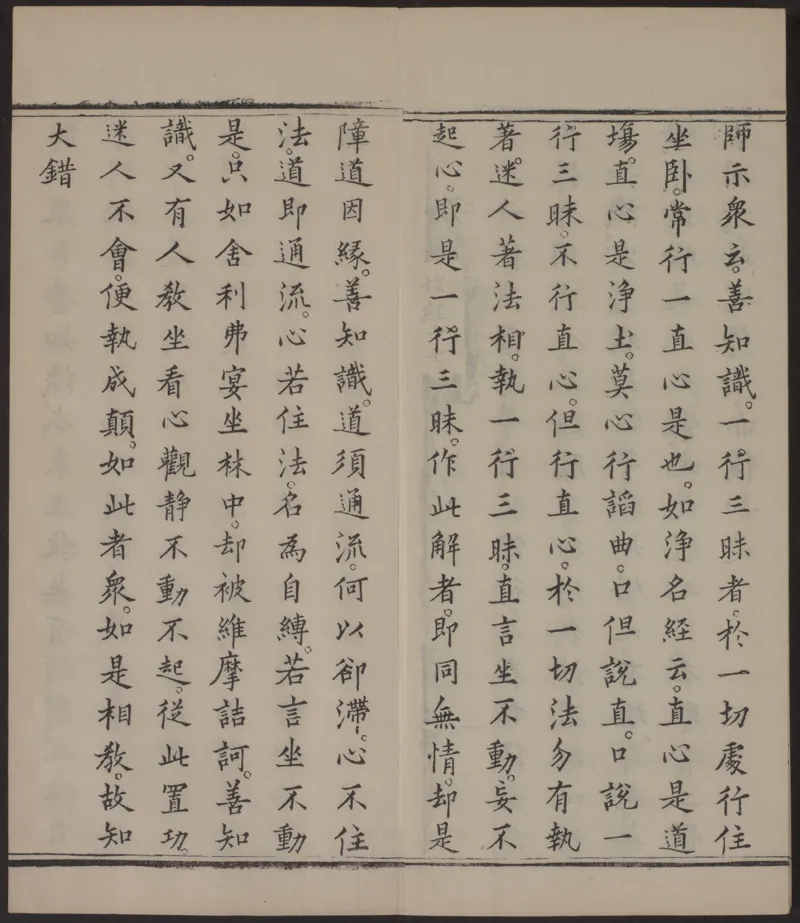 師示衆云。善知識。一行三昧者。於一切處行住
坐卧。常行一直心是也。如浄名經云。直心是道
場。直心是浄土。莫心行諂曲。口但說直。口說一
行三昧。不行直心。但行直心。於一切法勿有執
著。迷人著法相。執一行三昧。直言坐不動。妄不
起心。即是一行三昧。作此解者。即同無情。却是
障道因縁。善知識。道須通流。何以卻滯。心不住
法。道即通流。心若住法。名為自縛。若言坐不動
是。只如舍利弗宴坐林中。却被維摩詰訶。善知
識。又有人教坐看心觀靜不動不起。從此置功。
迷人不會。便執成顛。如此者衆。如是相教。故知
大錯